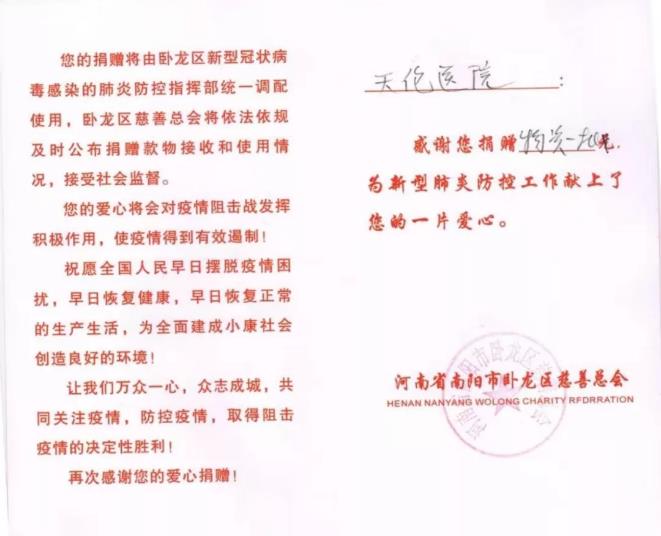 您的捐赠将由卧龙区新型冠状病
毒感染的肺炎防控指挥部统一调配
使用，卧龙区慈善总会将依法依规
及时公布捐赠款物接收和使用情
况，接受社会监督。
您的爱心将会对疫情阻击战发挥
积极作用，使疫情得到有效遏制！
祝愿全国人民早日摆脱疫情困
扰，早日恢复健康，早日恢复正常
的生产生活，为全面建成小康社会
创造良好的环境！
让我们万众一心，众志成城，共
同关注疫情，防控疫情，取得阻击
疫情的决定性胜利！
再次感谢您的爱心捐赠！
天伦医院：
感谢您捐赠物资一批元，
为新型肺炎防控工作献上了
您的一片爱心。
河南省南阳市卧龙区慈善总会
HENAN NANYANG WOLONG CHARITY RFDRRATION